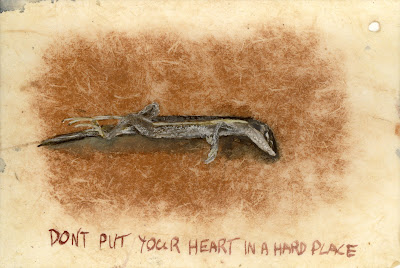 DON'T PUT YOUR HEART IN A HARD PLACE